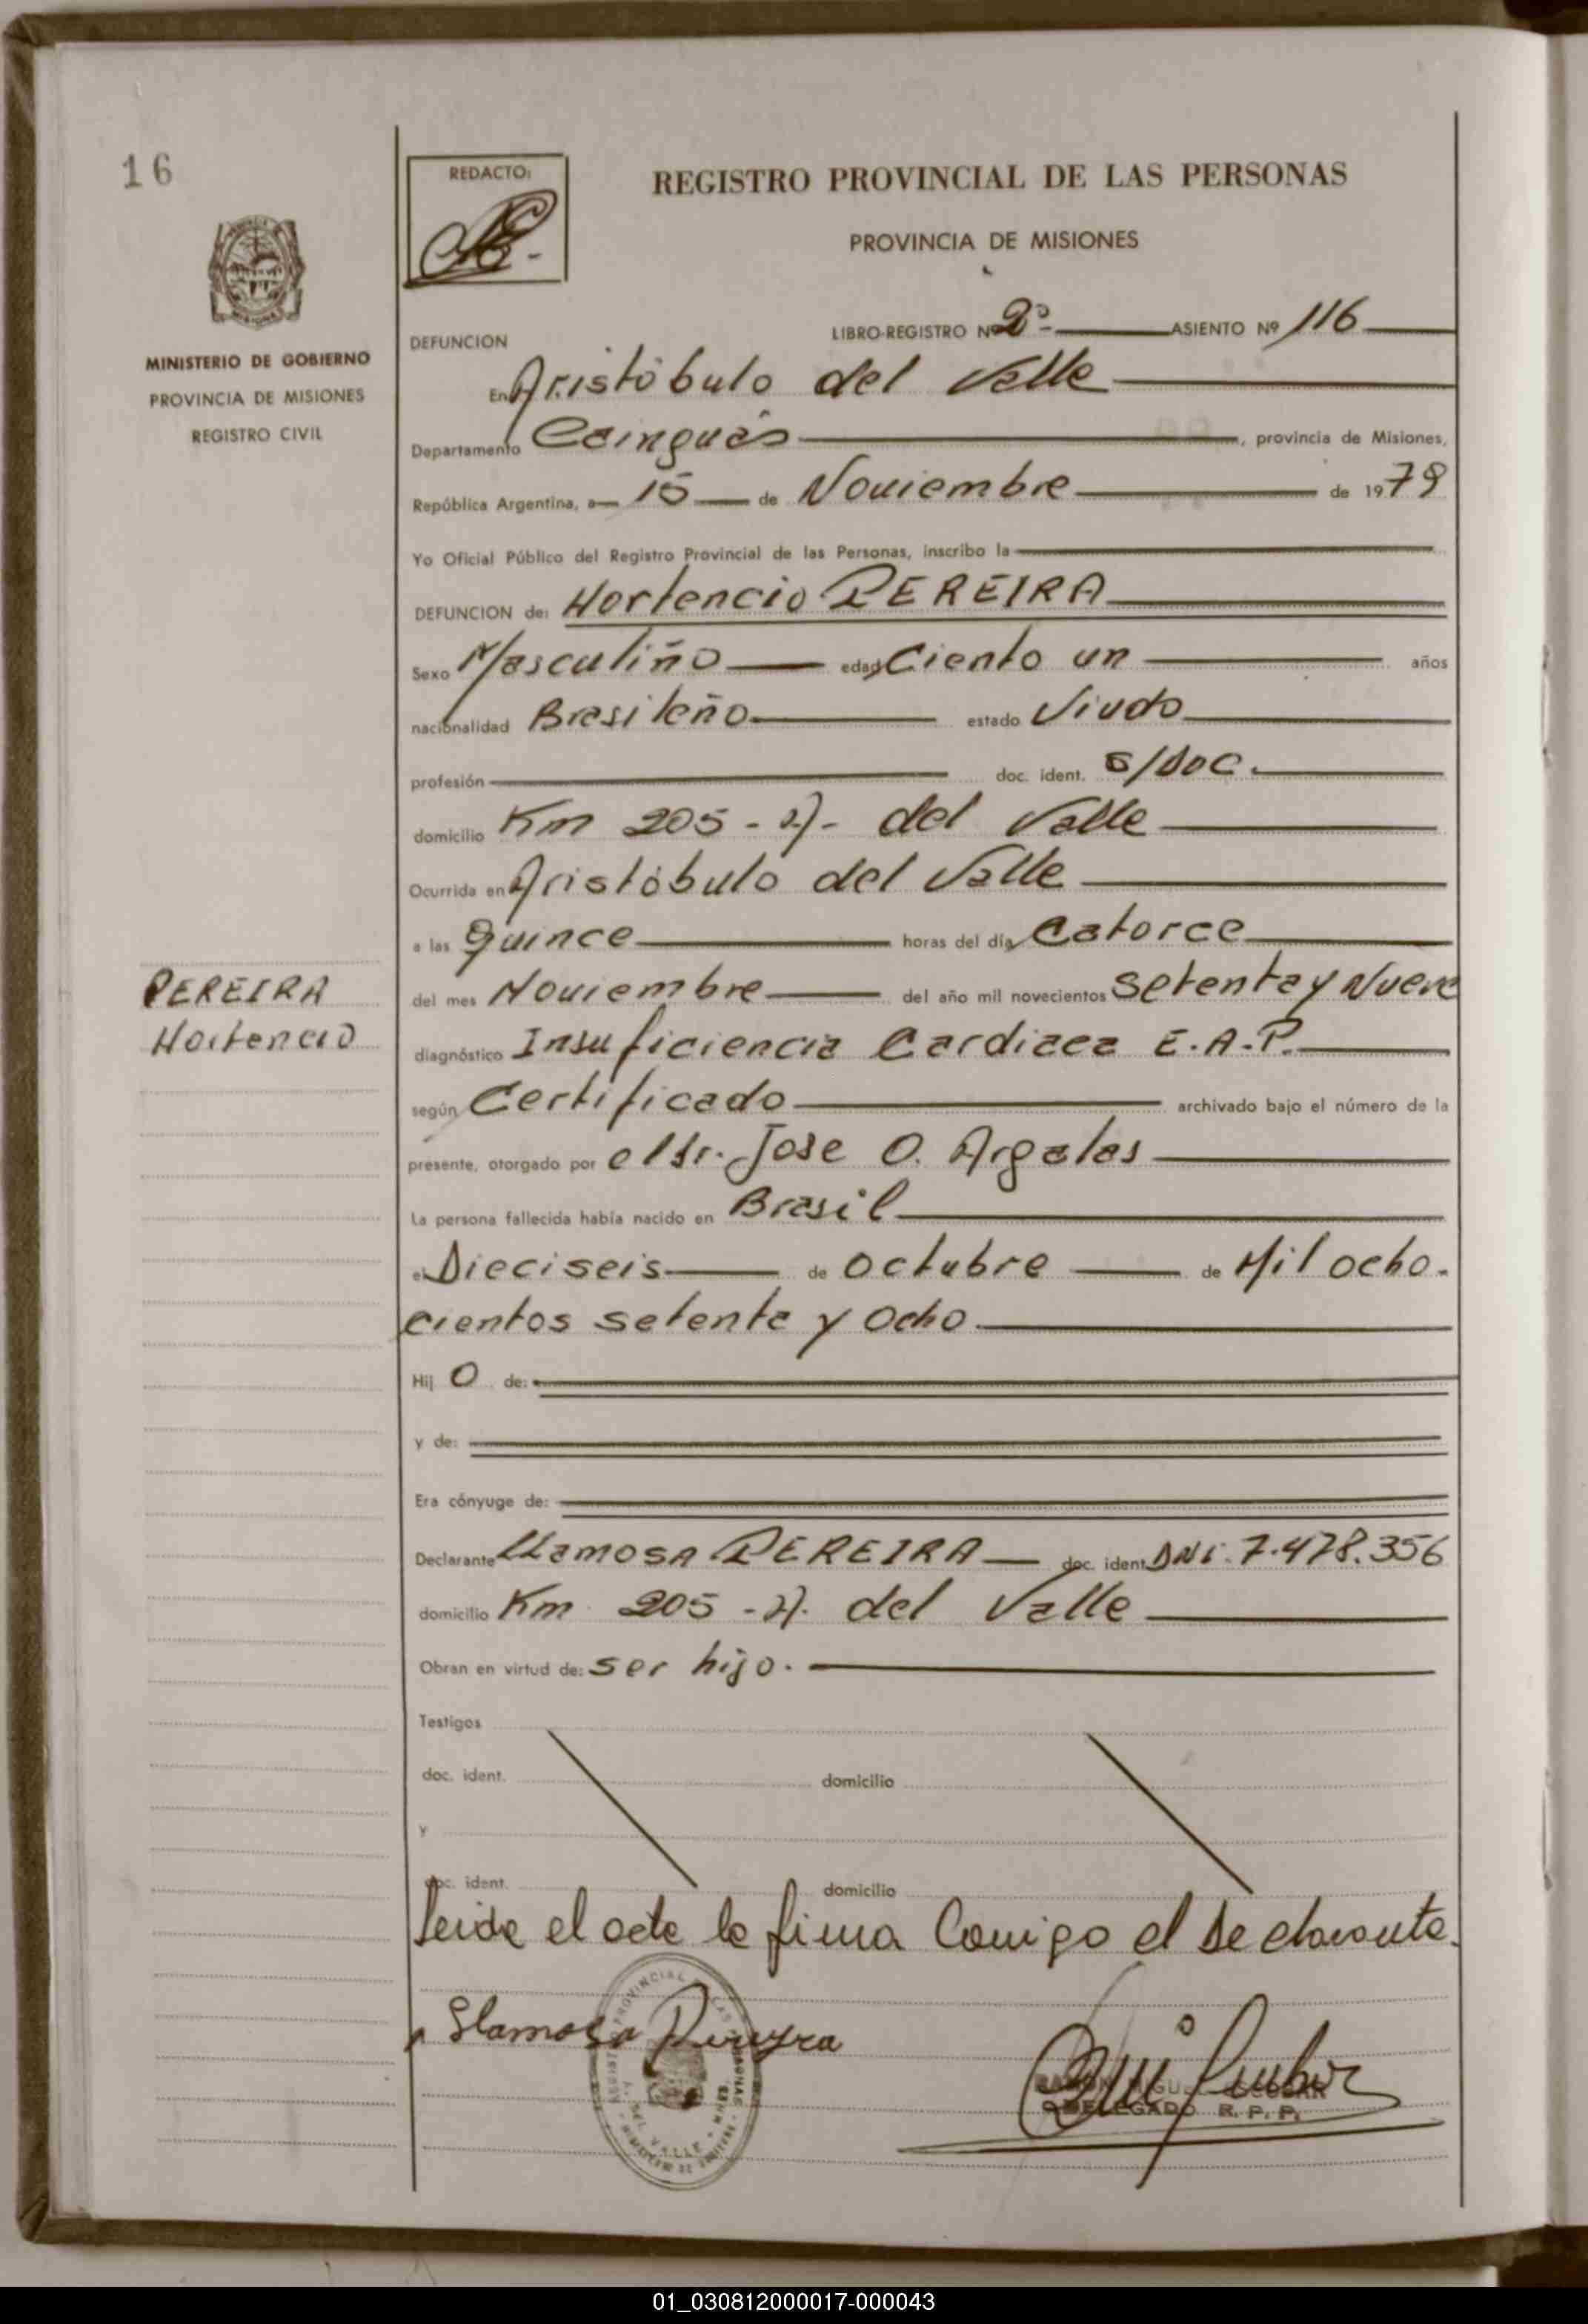 16
REDACTO:
REGISTRO PROVINCIAL DE LAS PERSONAS
PROVINCIA DE MISIONES
MINISTERIO DE GOBIERNO
PROVINCIA DE MISIONES
REGISTRO CIVIL
DEFUNCION LIBRO-REGISTRO Nº 2º- ASIENTO Nº 116
En Aristóbulo del Valle
Departamento Cainguás, provincia de Misiones,
República Argentina, a 15 de Noviembre de 1979
Yo Oficial Público del Registro Provincial de las Personas, inscribo la
DEFUNCION de: Hortencio PEREIRA
Sexo Masculino edad Ciento un años
nacionalidad Brasileño estado Viudo
profesión doc. ident. S/Doc.
domicilio Km 205 - A. del Valle
Ocurrida en Aristóbulo del Valle
a las quince horas del día Catorce
del mes Noviembre del año mil novecientos Setenta y Nueve
PEREIRA
Hortencio
diagnóstico Insuficiencia Cardiaca E.A.P.
según Certificado archivado bajo el número de la
presente, otorgado por el Dr. Jose O. Argalas
La persona fallecida había nacido en Brasil
el Dieciseis de Octubre de Mil ocho-
cientos setenta y ocho
Hij o de:
y de:
Era cónyuge de:
Declarante Llamosa PEREIRA doc. ident. DNI. 7.478.356
domicilio Km 205 - A. del Valle
Obran en virtud de: ser hijo.
Testigos
doc. ident. domicilio
y
doc. ident. domicilio
Leida el acta la firma Conmigo el Declarante.
Llamosa Pereyra
RAMON MIGUEL ESCOBAR
DELEGADO R. P. P.
01_030812000017-000043